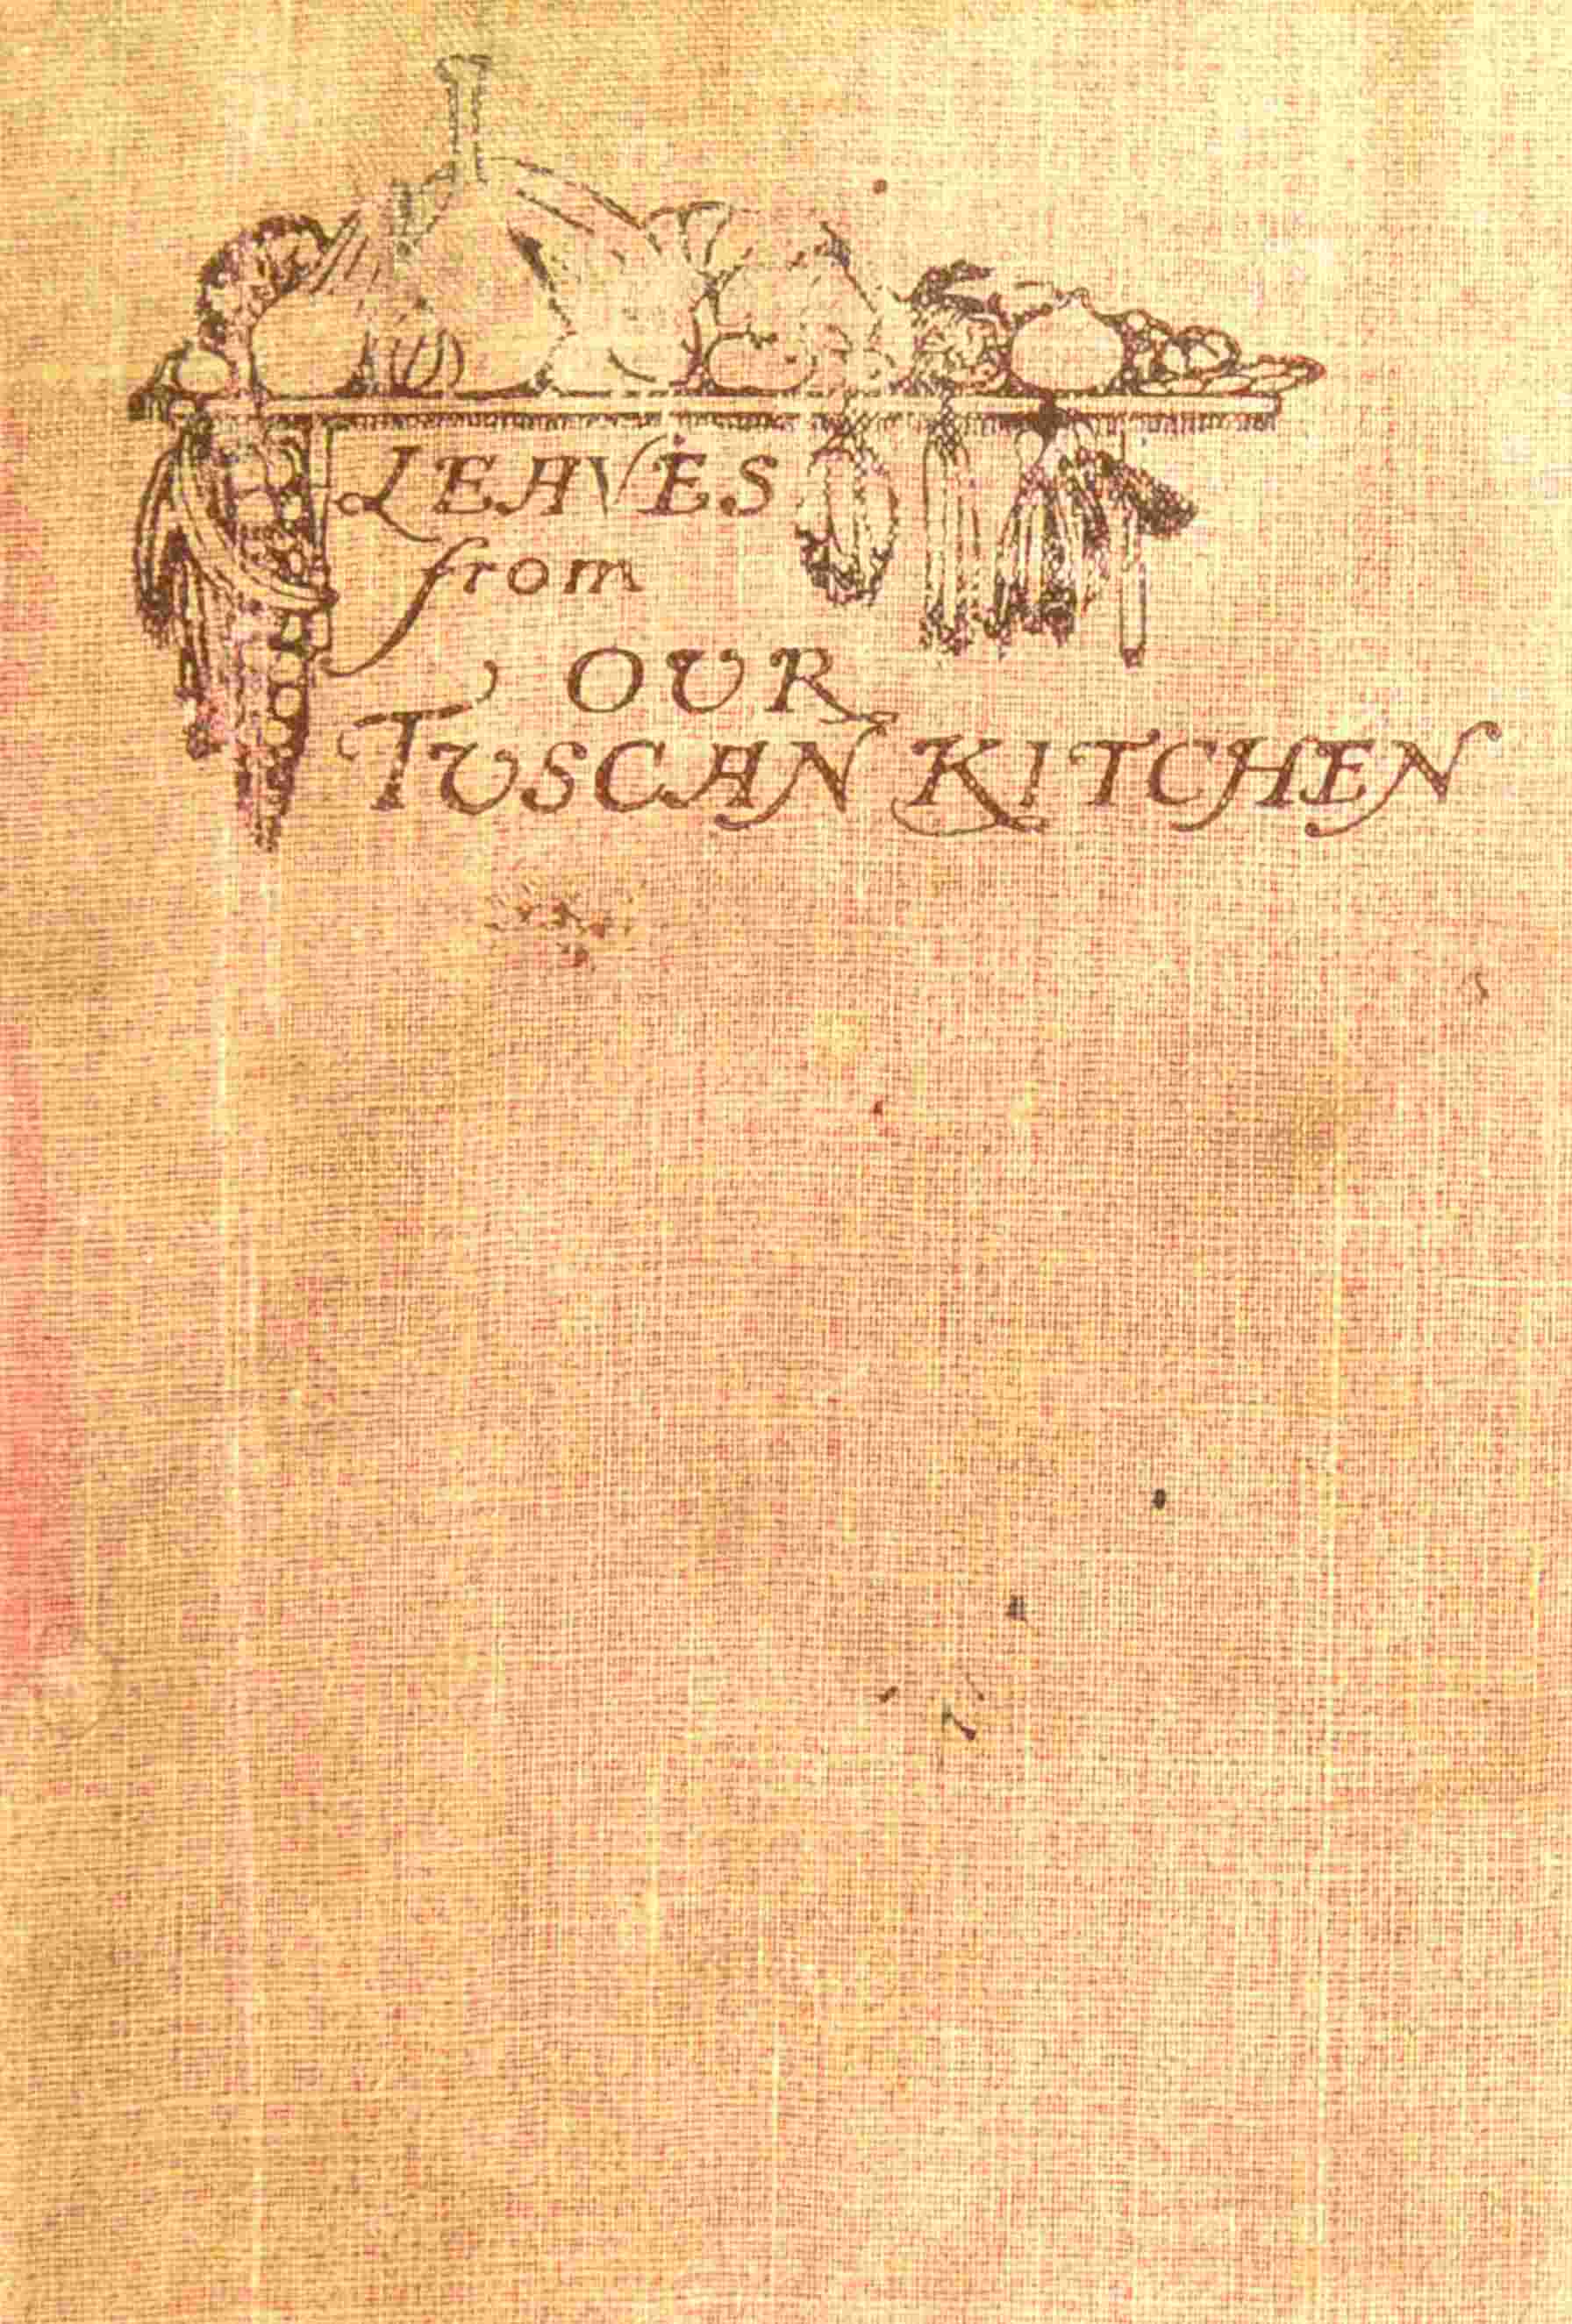 LEAVES
from
OUR
TUSCAN KITCHEN